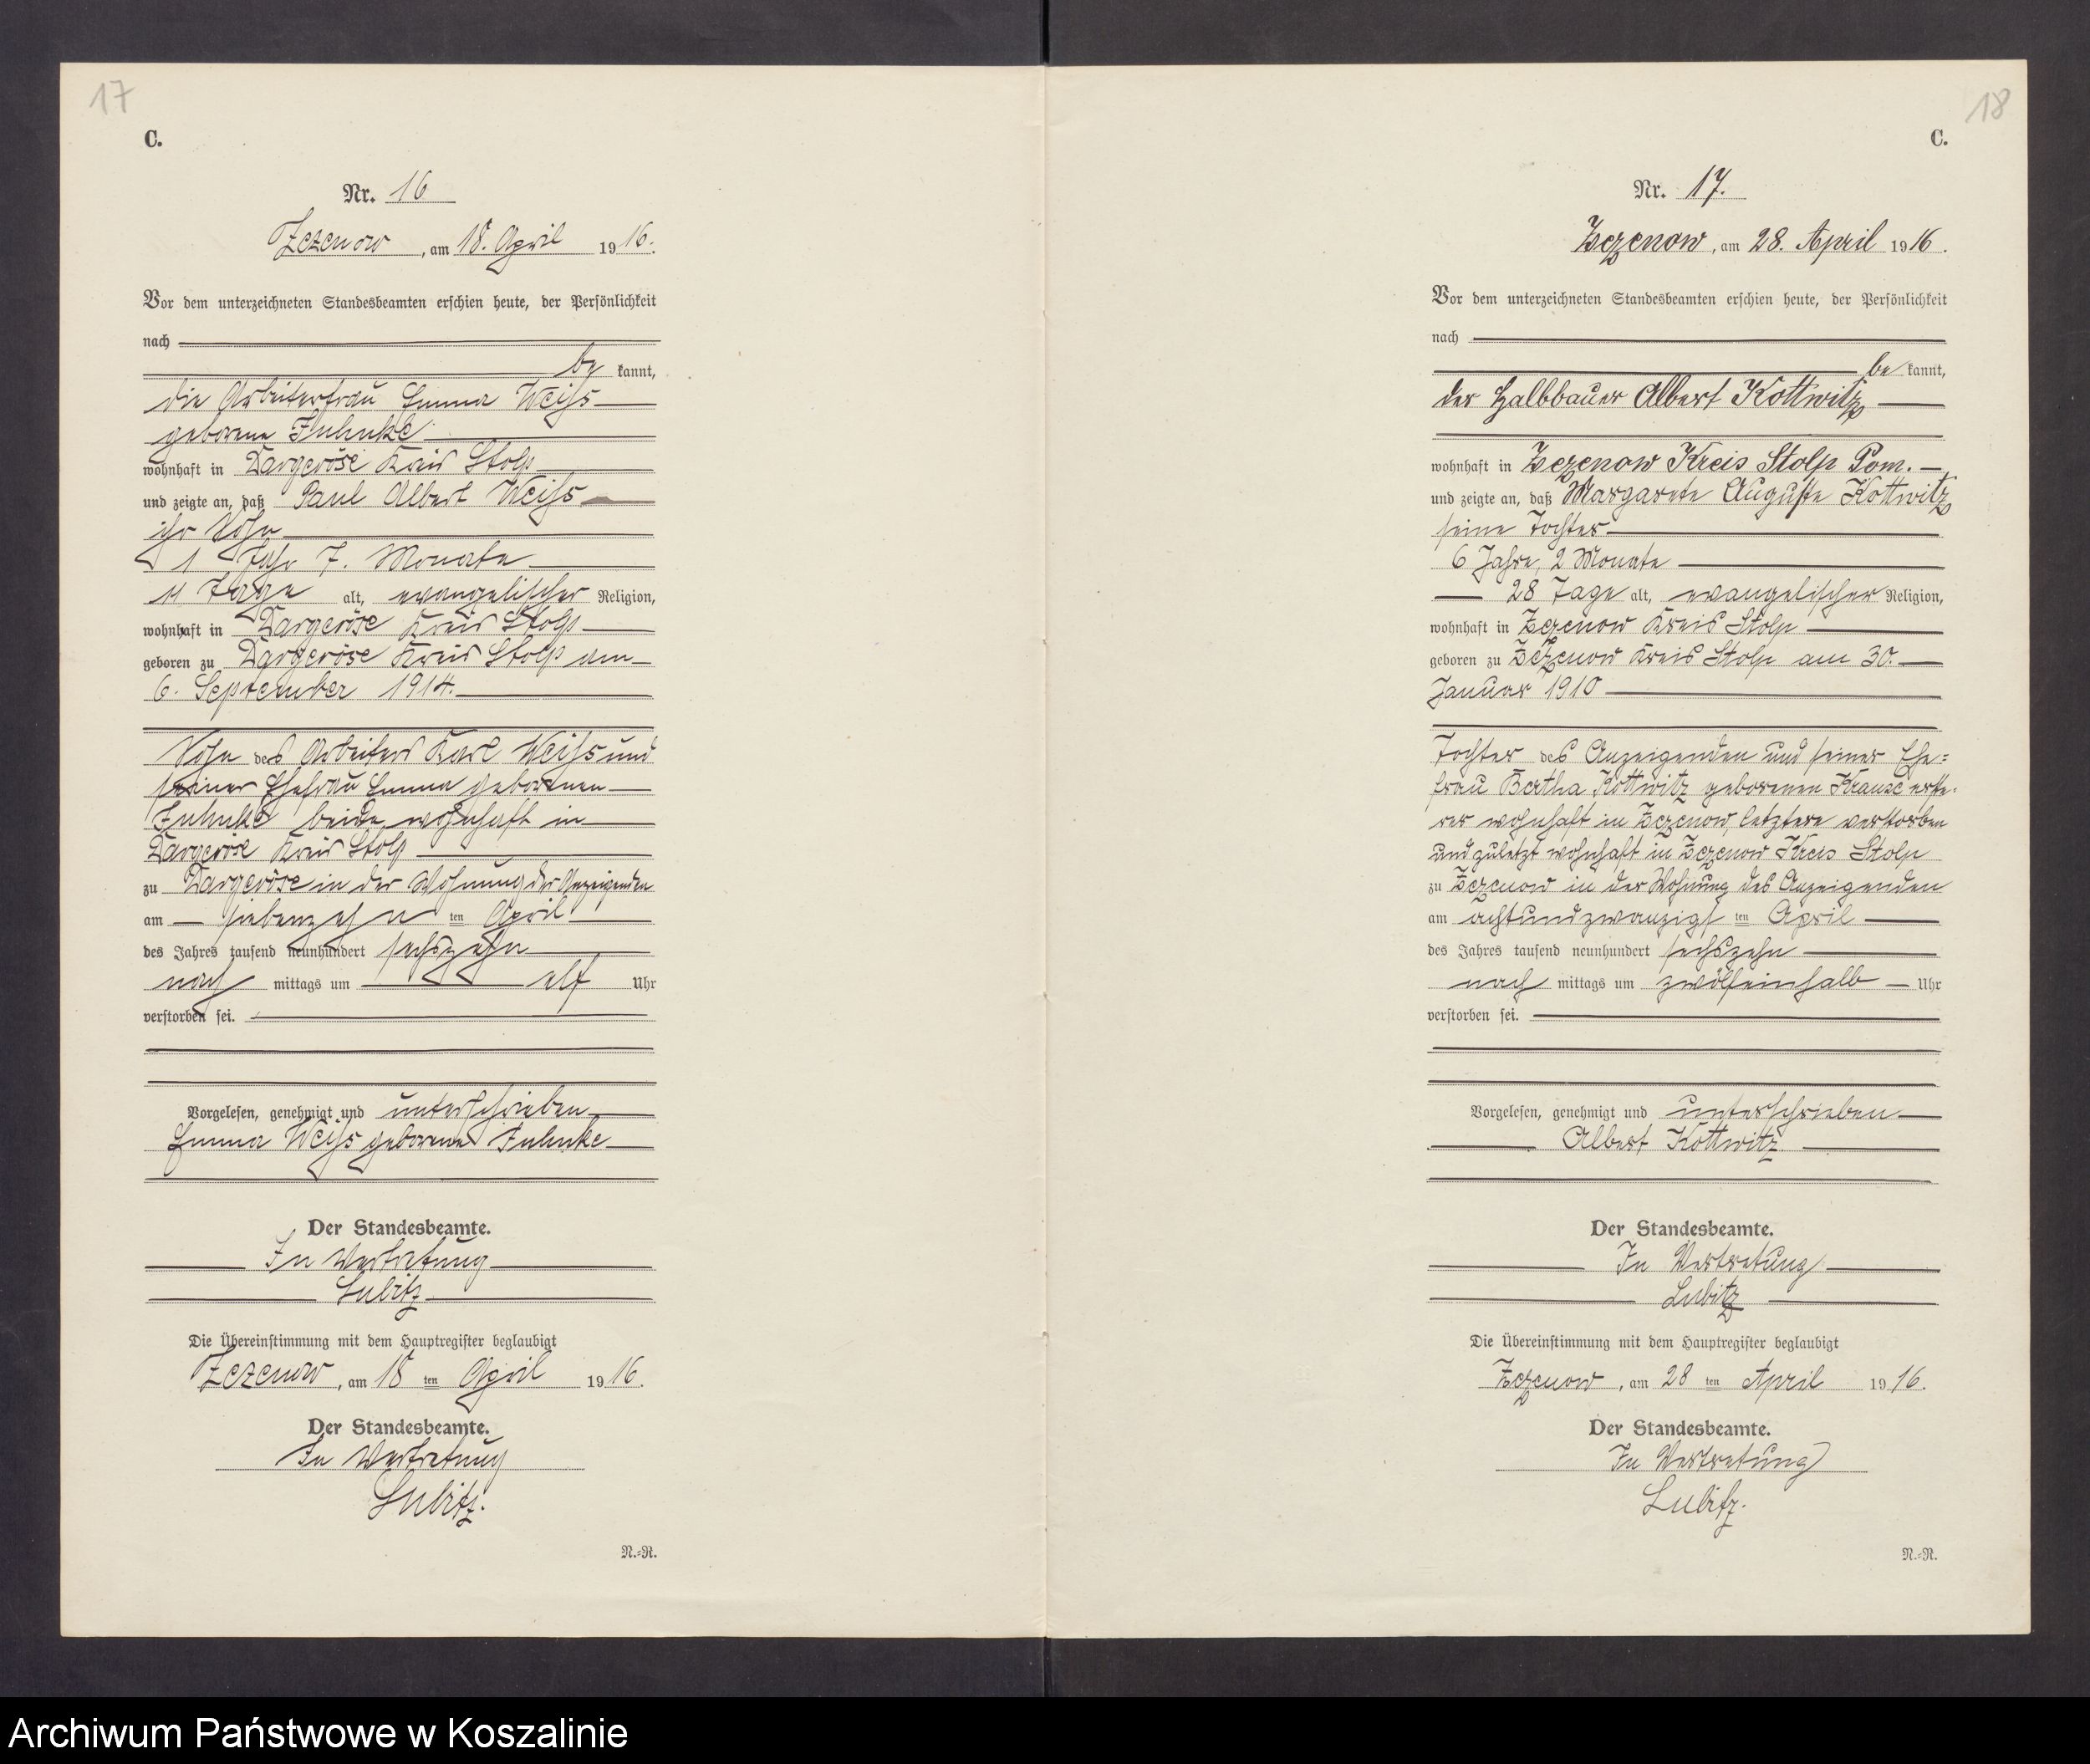 17
C.
Nr. 16
Zezenow, am 18. April 1916.
Vor dem unterzeichneten Standesbeamten erschien heute, der Persönlichkeit
nach
be kannt,
die Arbeiterfrau Emma Weiß
geborene
wohnhaft in Dargeröse Kreis Stolp
und zeigte an, daß Paul Albert Weiß
ihr Sohn
1 Jahr 7. Monate
11 Tage alt, evangelischer Religion,
wohnhaft in Dargeröse Kreis Stolp
geboren zu Dargeröse Kreis Stolp am
6. September 1914.
Sohn des Arbeiters Karl Weiß und
seiner Ehefrau Emma geborenen
beide wohnhaft in
Dargeröse Kreis Stolp
zu Dargeröse in der Wohnung der Anzeigenden
am siebenzehn ten April
des Jahres tausend neunhundert sechszehn
nach mittags um elf Uhr
verstorben sei.
Vorgelesen, genehmigt und unterschrieben
Emma Weiß geborene
Der Standesbeamte.
In Vertretung
Lubitz
Die Übereinstimmung mit dem Hauptregister beglaubigt
Zezenow, am 18 ten April 1916.
Der Standesbeamte.
In Vertretung
Lubitz.
N.-R.
18
C.
Nr. 17.
Zezenow, am 28. April 1916.
Vor dem unterzeichneten Standesbeamten erschien heute, der Persönlichkeit
nach
be kannt,
der Halbbauer Albert Kottwitz
wohnhaft in Zezenow Kreis Stolp Pom.
und zeigte an, daß Margarete Auguste Kottwitz
seine Tochter
6 Jahre, 2 Monate
28 Tage alt, evangelischer Religion,
wohnhaft in Zezenow Kreis Stolp
geboren zu Zezenow Kreis Stolp am 30.
Januar 1910
Tochter des Anzeigenden und seiner Ehe=
frau Bertha Kottwitz geborenen Krause erste-
rer wohnhaft in Zezenow, letztere verstorben
und zuletzt wohnhaft in Zezenow Kreis Stolp
zu Zezenow in der Wohnung des Anzeigenden
am achtundzwanzigs ten April
des Jahres tausend neunhundert sechszehn
nach mittags um zwölfeinhalb Uhr
verstorben sei.
Vorgelesen, genehmigt und unterschrieben
Albert Kottwitz
Der Standesbeamte.
In Vertretung
Lubitz
Die Übereinstimmung mit dem Hauptregister beglaubigt
Zezenow, am 28 ten April 1916.
Der Standesbeamte.
In Vertretung
Lubitz.
N.-R.
Archiwum Państwowe w Koszalinie